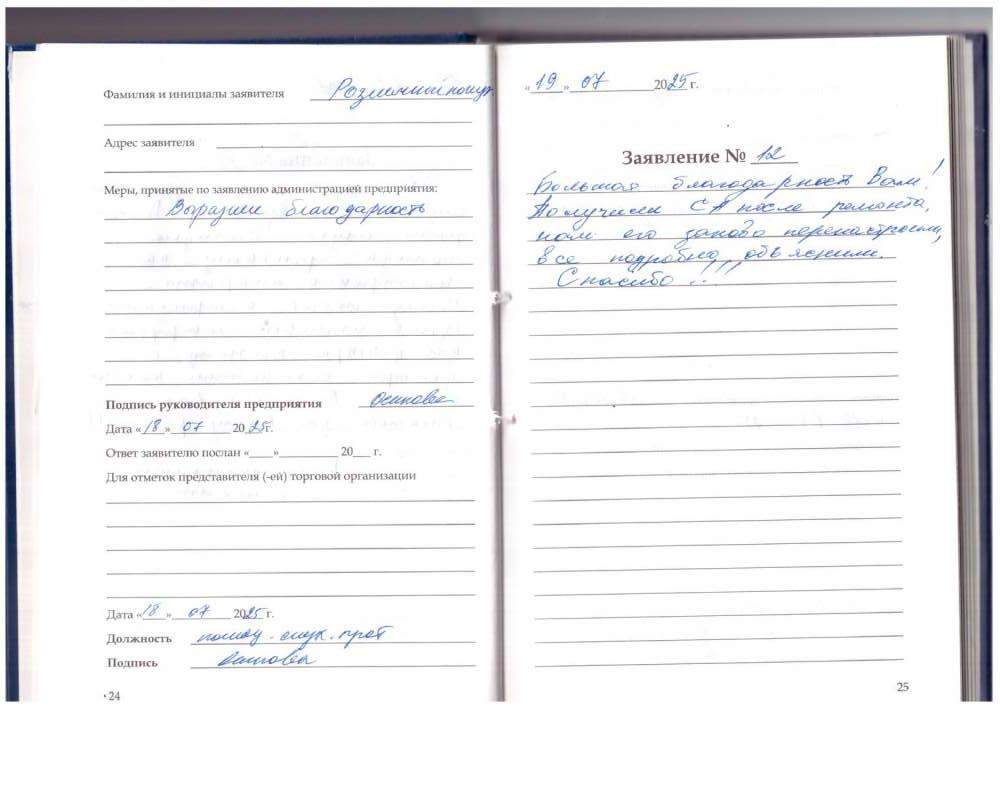 Фамилия и инициалы заявителя Розничный покуп.
Адрес заявителя
Меры, принятые по заявлению администрацией предприятия:
Выразили благодарность
Подпись руководителя предприятия
Дата «18» 07 2025г.
Ответ заявителю послан «____»__________ 20___ г.
Для отметок представителя (-ей) торговой организации
Дата «18» 07 2025 г.
Должность
Подпись
24
«19» 07 2025 г.
Заявление № 12
Большая благодарность Вам!
Получили СА после ремонта,
нам его заново перенастроили,
все подробно объяснили.
Спасибо!!!
25